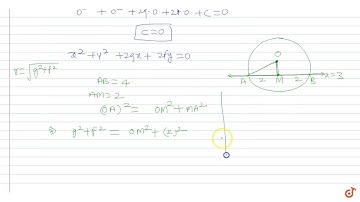 0² + 0² + 2g·0 + 2f·0 + C = 0
C = 0
x² + y² + 2gx + 2fy = 0
r = √g²+f²
AB = 4
AM = 2
(OA)² = OM² + MA²
⇒ g² + f² = OM² + (2)²
O
A 2 M 2 B x=3